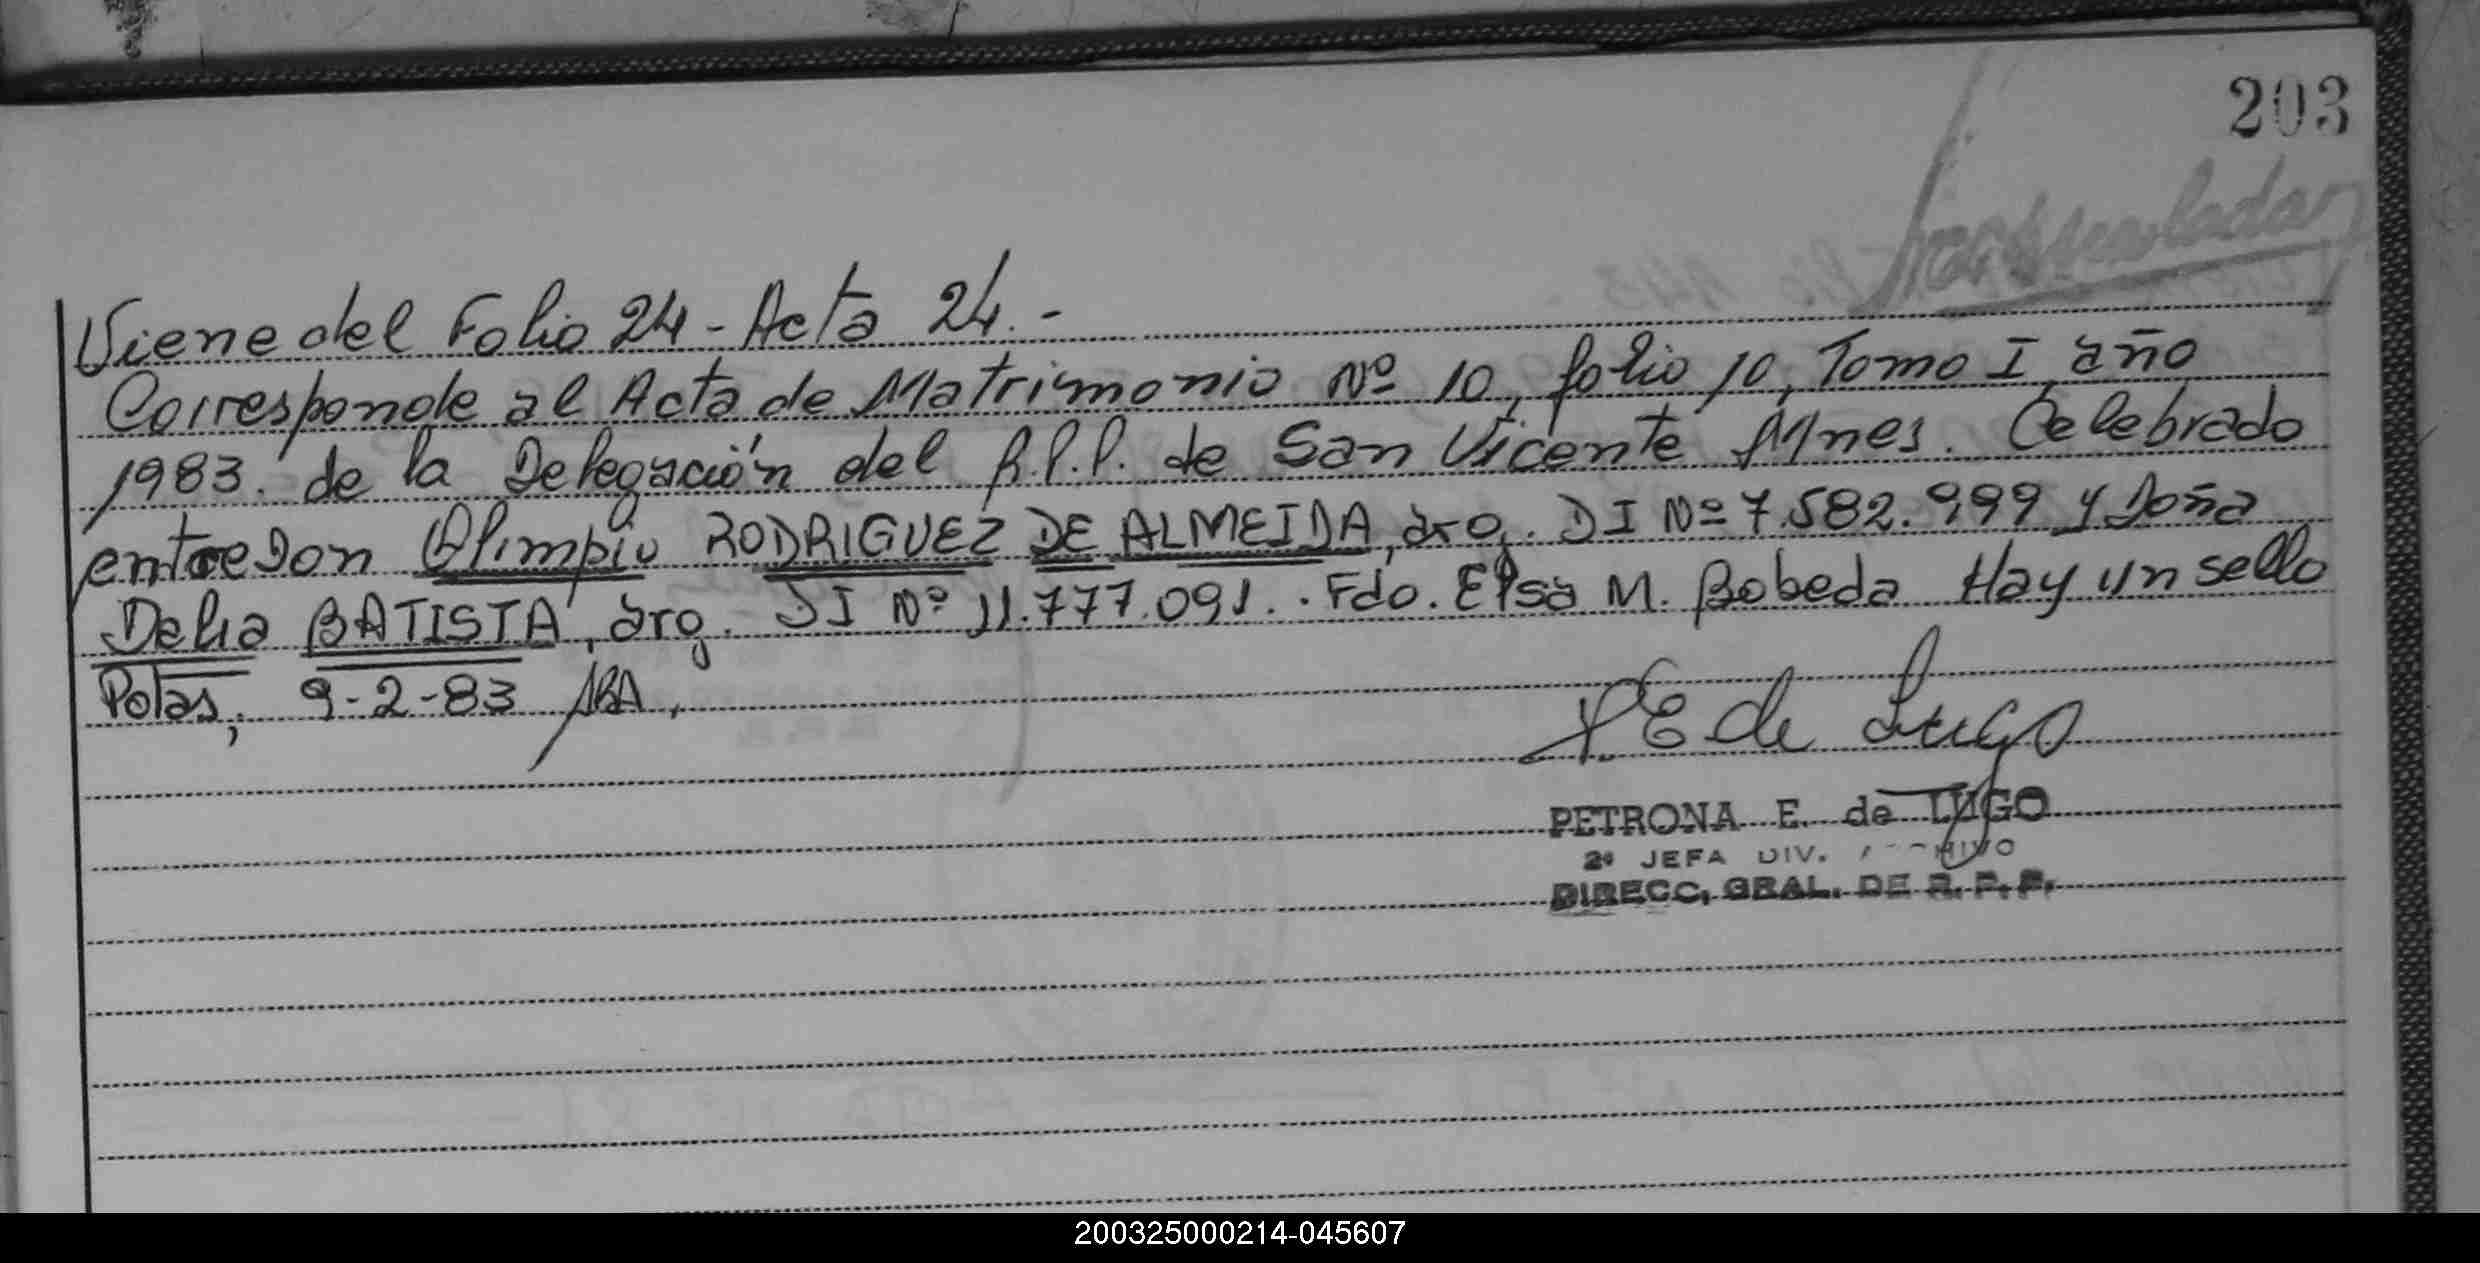 203
Viene del Folio 24 - Acta 24. -
Corresponde al Acta de Matrimonio Nº 10, folio 10, Tomo I año
1983. de la Delegación del R.P.P. de San Vicente Mnes. Celebrado
entre Don Olimpio RODRIGUEZ DE ALMEIDA, arg. DI Nº 7.582.999 y Doña
Delia BATISTA, arg. DI Nº 11.777.091. . Fdo. Elsa M. Bobeda Hay un sello
Potas, 9-2-83 /RA,
P.E de Lugo
PETRONA E. de LUGO
2ª JEFA DIV.
DIRECC. GRAL. DE R. P. P.
200325000214-045607